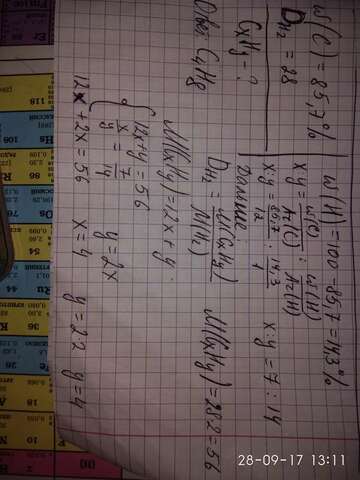 ω(C) = 85,7%
D H₂ = 28
CxHy - ?
Ответ: C₄H₈
ω(H) = 100 - 85,7 = 14,3%
x:y = ω(C)/Ar(C) : ω(H)/Ar(H)
x:y = 85,7/12 : 14,3/1 x:y = 7:14
Дальше:
D H₂ = M(CxHy)/M(H₂) M(CxHy) = 28·2 = 56
M(CxHy) = 12x + y
{ 12x + y = 56
x/y = 7/14 y = 2x
12x + 2x = 56 x = 4 y = 2·2 y = 4
28-09-17 13:11